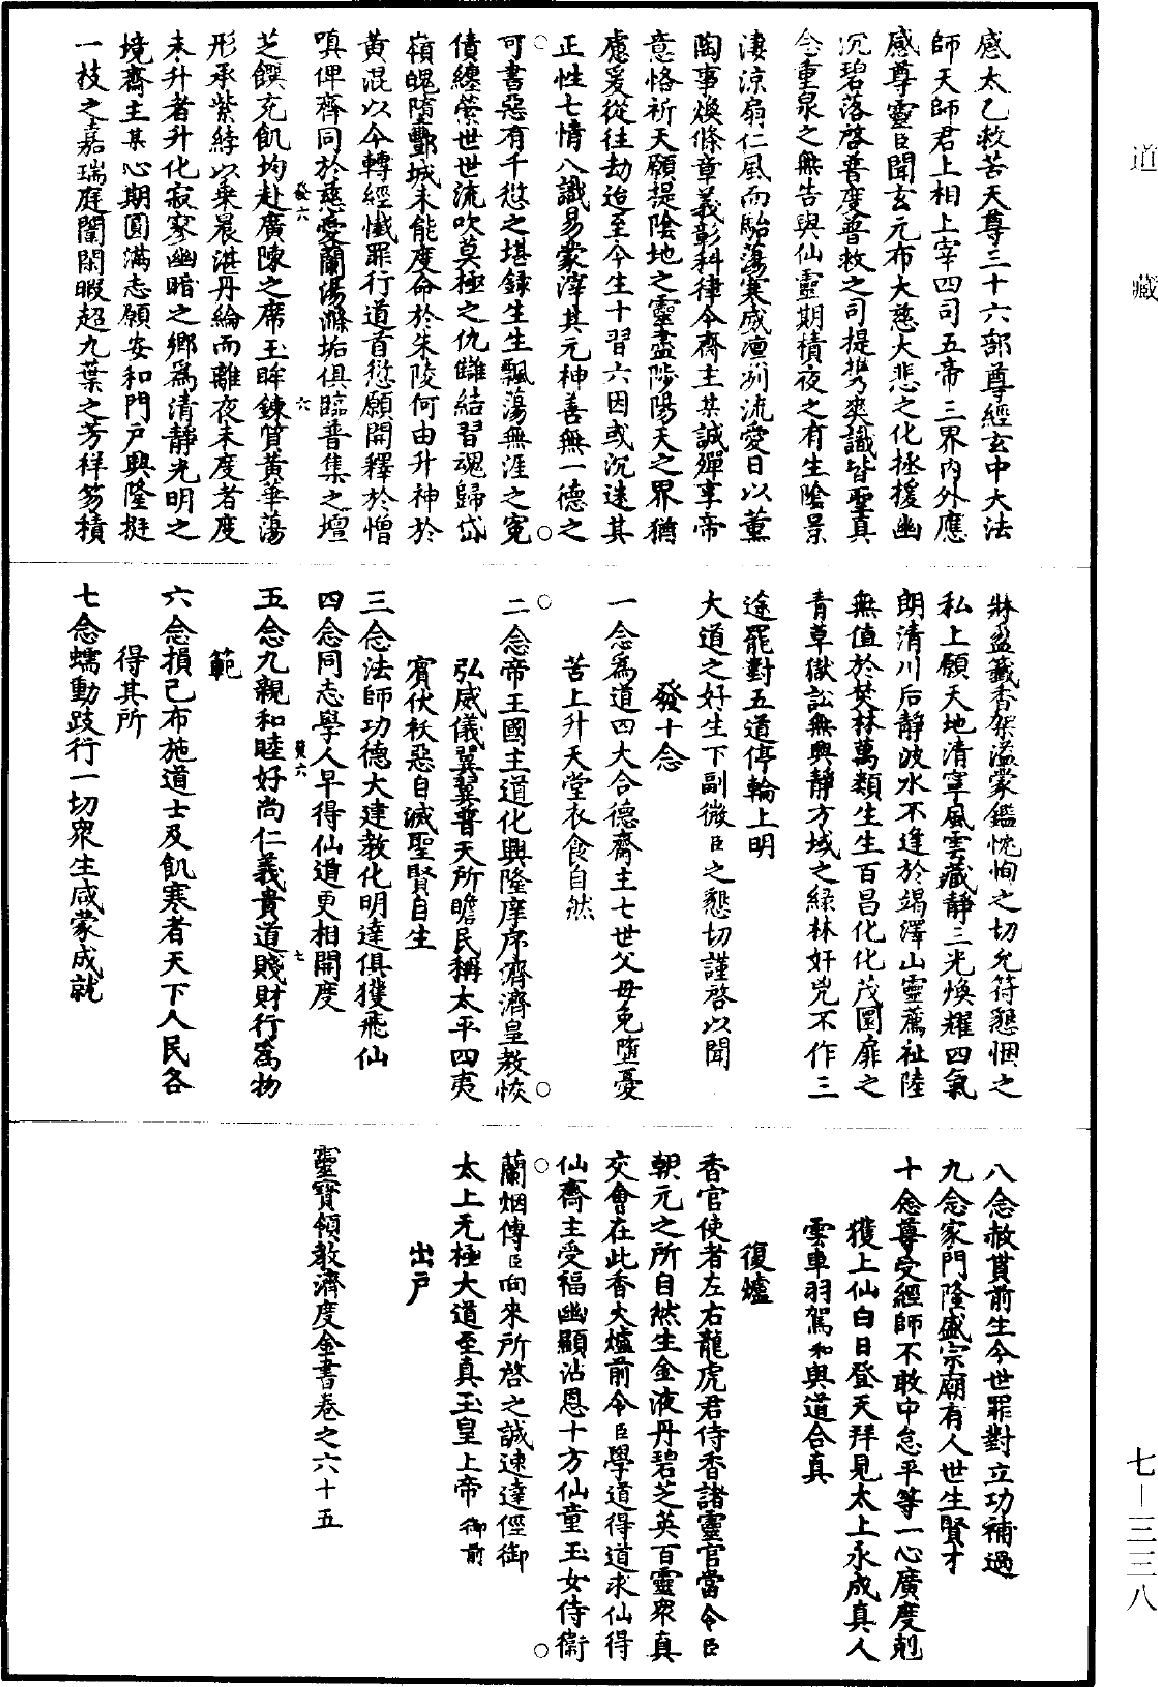 道藏
感太乙救苦天尊三十六部尊經玄中大法
師天師君上相上宰四司五帝三界內外應
感尊靈臣聞玄元布大慈大悲之化拯援幽
沉碧落啓普度普救之司提㩗爽識皆聖真
念重泉之無告與仙靈期積夜之有生陰景
淒涼扇仁風而駘蕩寒威凜冽流愛日以薰
陶事煥條章義彰科律今齋主某誠殫享帝
意恪祈天願提陰地之靈盡陟陽天之界猶
慮爰從往劫迨至今生十習六因或沉迷其
正性七情八識易蒙滓其元神善無一德之
可書惡有千愆之堪録生生飄蕩無涯之寃
債纏縈世世流吹莫極之仇讎結習魂歸岱
嶺魄墮酆城未能度命於朱陵何由升神於
黃混以今轉經懺罪行道首愆願開釋於憎
嗔俾齊同於慈愛蘭湯滌垢俱臨普集之壇
芝饌充飢均赴廣陳之席玉眸鍊質黃華蕩
形承紫綍以乗晨湛丹綸而離夜未度者度
未升者升化寂寥幽暗之鄉爲清靜光明之
境齋主某心期圓滿志願安和門戶興隆挺
一枝之嘉瑞庭闈閑暇超九葉之芳祥笏積
牀盈籤香架溢蒙鑑忱恂之切允符懇悃之
私上願天地清寧風雲藏靜三光煥耀四氣
朗清川后靜波水不逢於竭澤山靈薦祉陸
無值於焚林萬類生生百昌化化茂園扉之
青草獄訟無興靜方域之緑林奸兇不作三
途罷對五道停輪上明
大道之好生下副微臣之懇切謹啓以聞
發十念
一念爲道四大合德齋主七世父母免墮憂
苦上升天堂衣食自然
二念帝王國主道化興隆庠序濟濟皇教恢
弘威儀翼翼普天所瞻民稱太平四夷
賓伏袄惡自滅聖賢自生
三念法師功德大建教化明達俱獲飛仙
四念同志學人早得仙道更相開度
五念九親和睦好尚仁義貴道賤財行爲物
範
六念損己布施道士及飢寒者天下人民各
得其所
七念蠕動跂行一切衆生咸蒙成就
八念赦貰前生今世罪對立功補過
九念家門隆盛宗廟有人世生賢才
十念尊受經師不敢中怠平等一心廣度剋
獲上仙白日登天拜見太上永成真人
雲車羽駕和與道合真
復爐
香官使者左右龍虎君侍香諸靈官當令臣
朝元之所自然生金液丹碧芝英百靈衆真
交會在此香火爐前令臣學道得道求仙得
仙齋主受福幽顯沾恩十方仙童玉女侍衛
蘭烟傳臣向來所啓之誠速達徑御
太上无極大道至真玉皇上帝御前
出戶
靈寶領教濟度金書卷之六十五
七—三三八